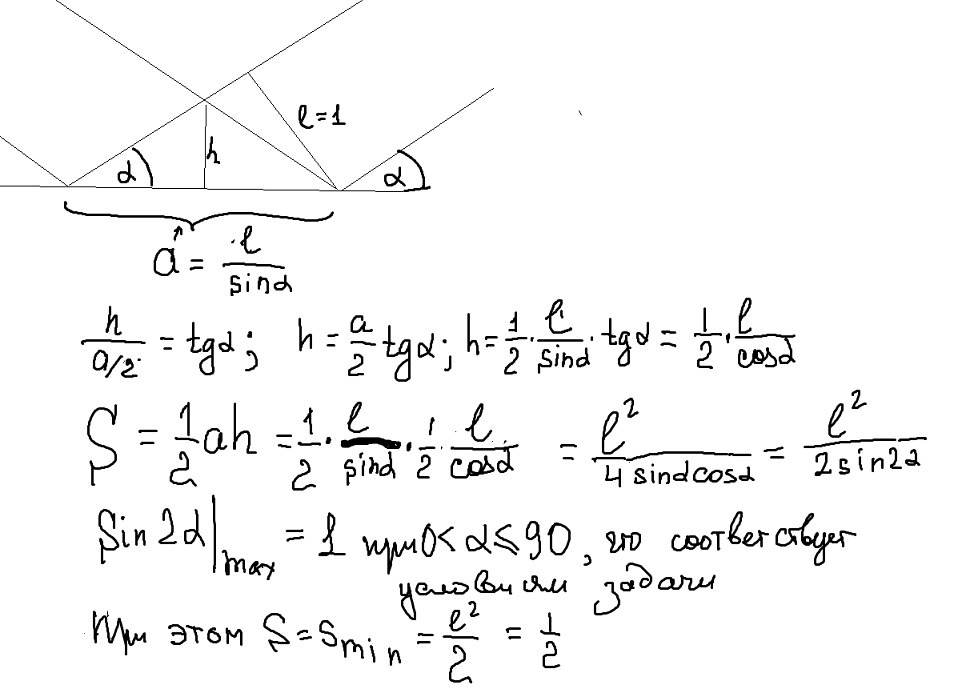 l=1
α h α
a = l/sinα
h/(a/2) = tgα; h = a/2 tgα; h = 1/2 · l/sinα · tgα = 1/2 · l/cosα
S = 1/2 ah = 1/2 · l/sinα · 1/2 · l/cosα = l²/(4 sinα cosα) = l²/(2 sin2α)
Sin 2α|max = 1 при 0<α≤90, что соответствует
условиям задачи
При этом S = Smin = l²/2 = 1/2